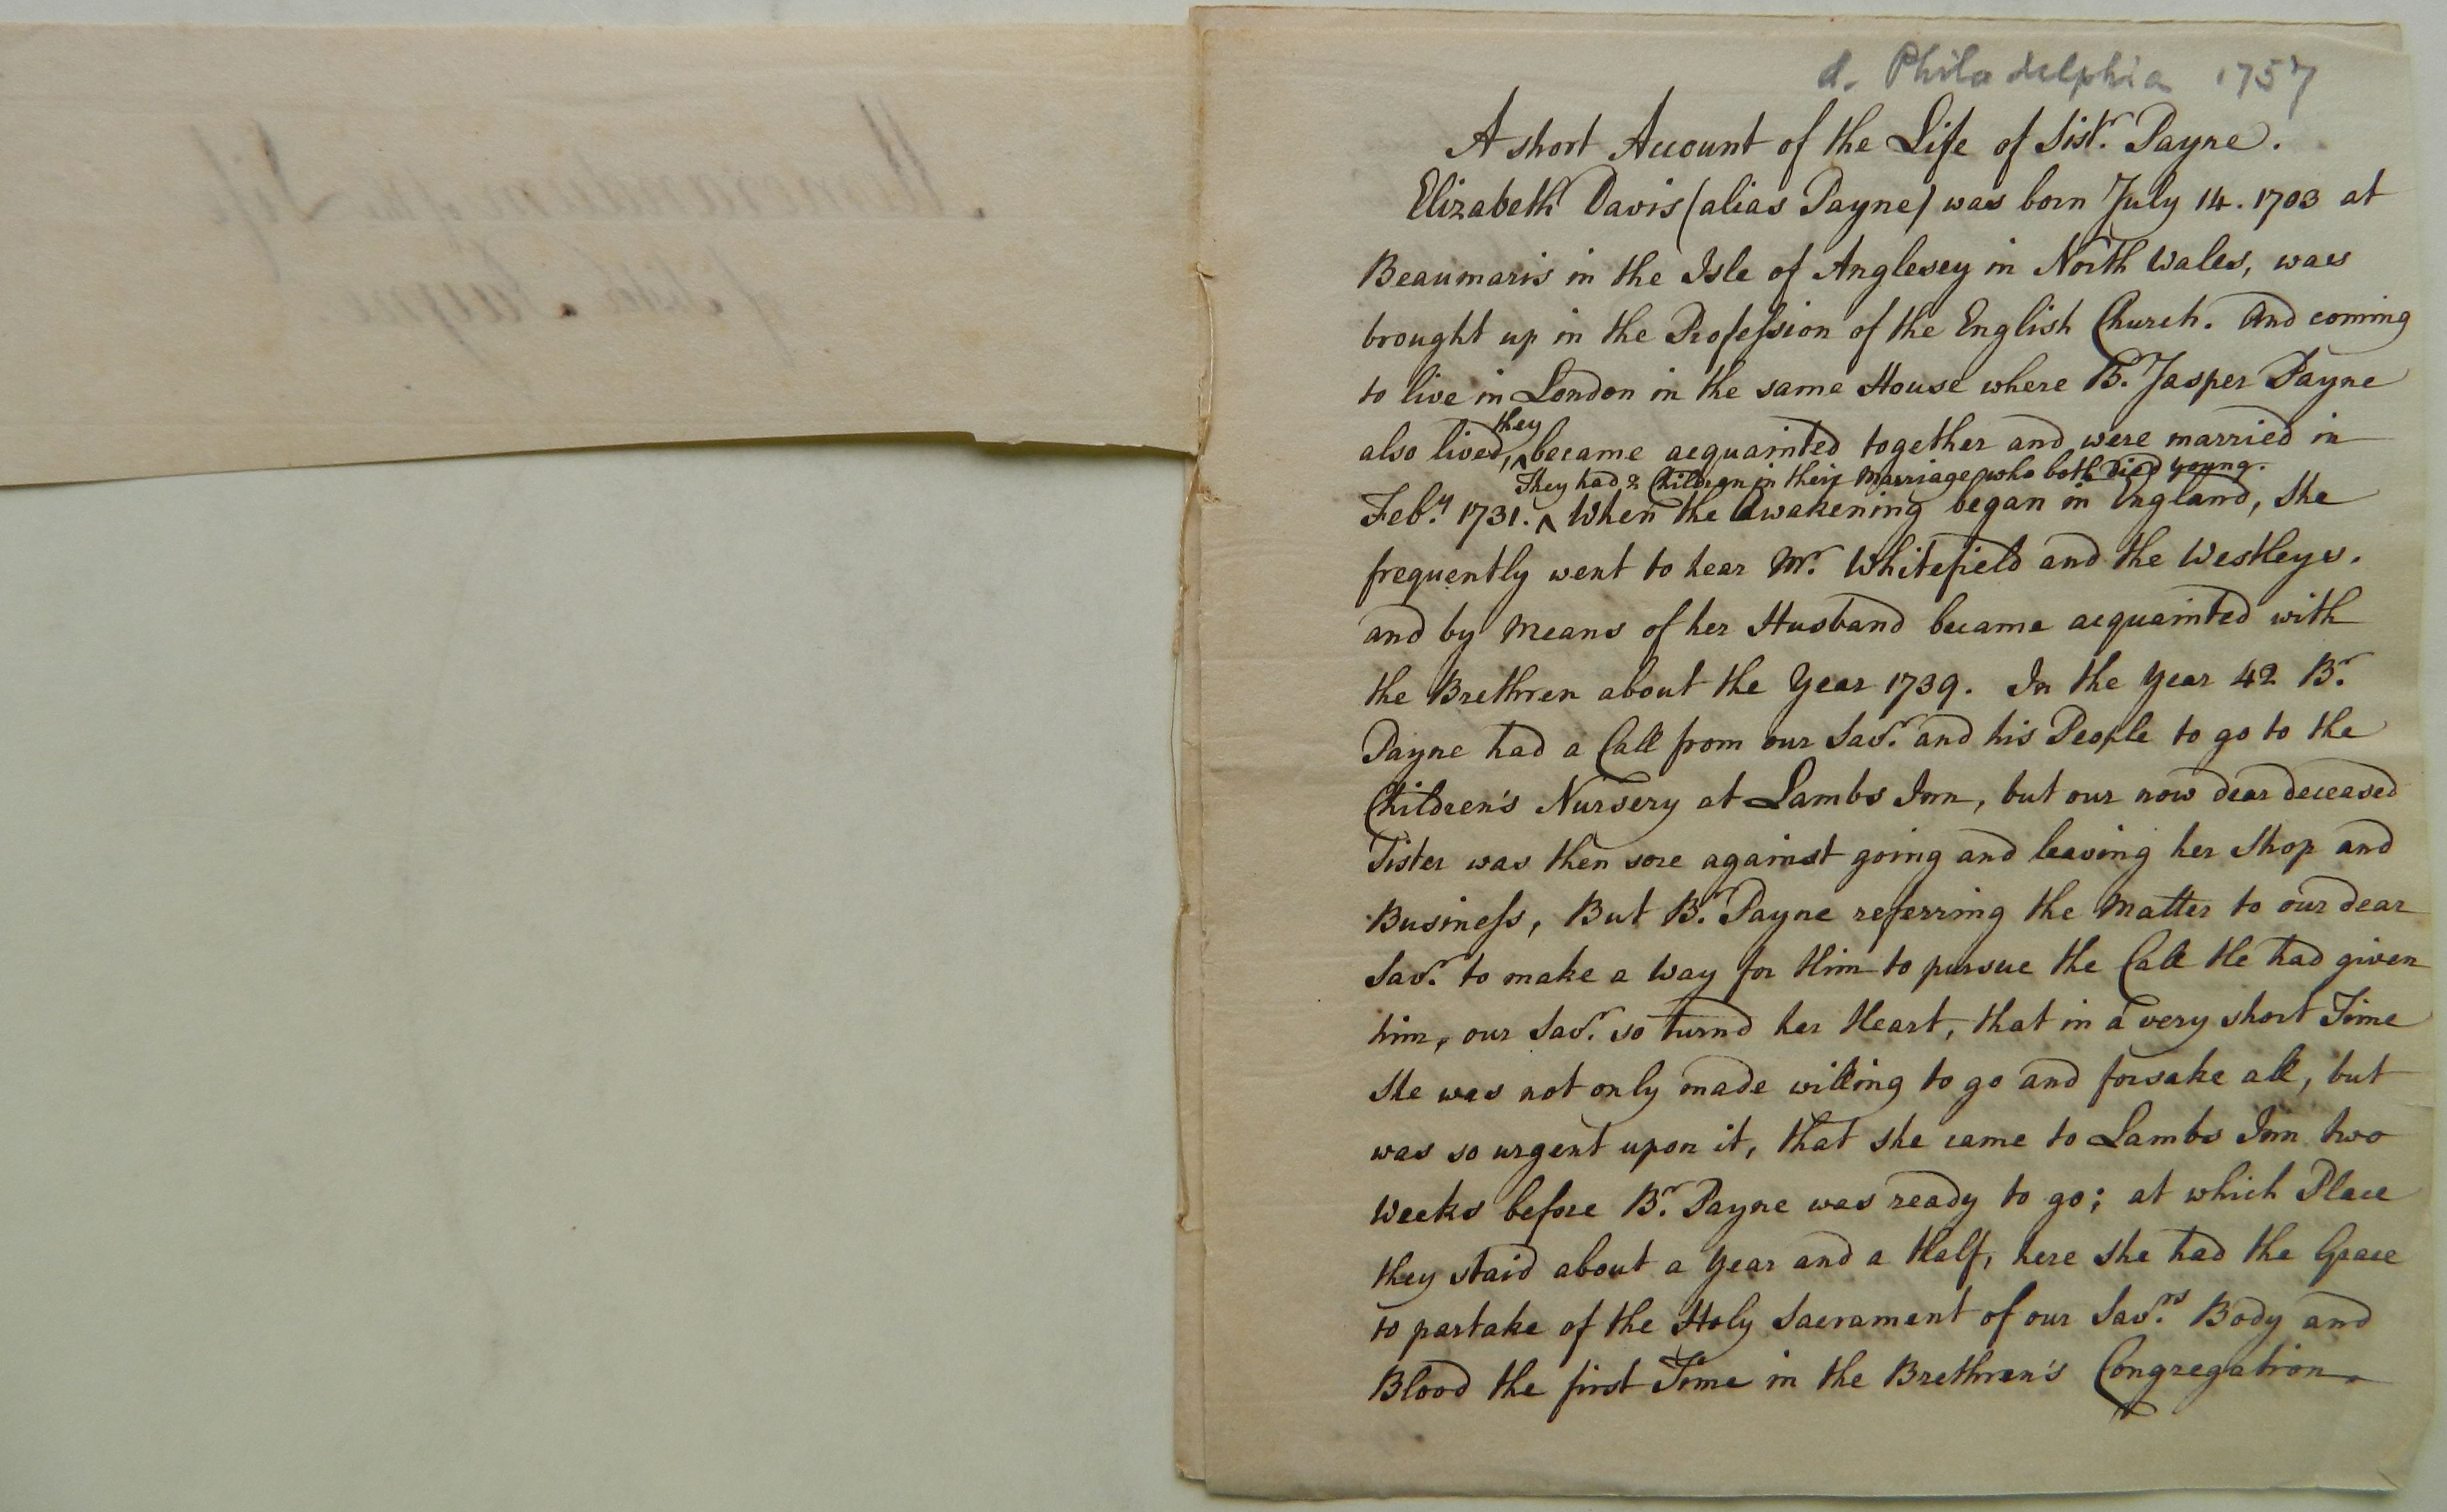 Memorandum
Life
d. Philadelphia 1757
A short Account of the Life of Sistr. Payne.
Elizabeth Davis (alias Payne) was born July 14. 1703 at
Beaumaris in the Isle of Anglesey in North Wales, was
brought up in the Profession of the English Church. And coming
to live in London in the same House where Br. Jasper Payne
also lived, they became acquainted together and were married in
They had 2 Children in their Marriage who both died young.
Feby. 1731. ^ When the Awakening began in England, She
frequently went to hear Mr. Whitefield and the Westleys.
and by Means of her Husband became acquainted with
the Brethren about the Year 1739. In the Year 42 Br.
Payne had a Call from our Savr. and his People to go to the
Children's Nursery at Lambs Inn, but our now dear deceased
Sister was then sore against going and leaving her Shop and
Business, But Br. Payne referring the Matter to our dear
Savr. to make a Way for Him to pursue the Call He had given
him, our Savr. so turnd her Heart, that in a very short Time
She was not only made willing to go and forsake all, but
was so urgent upon it, that she came to Lambs Inn two
Weeks before Br. Payne was ready to go; at which Place
they staid about a Year and a Half, here she had the Grace
to partake of the Holy Sacrament of our Savrs. Body and
Blood the first Time in the Brethren's Congregation.